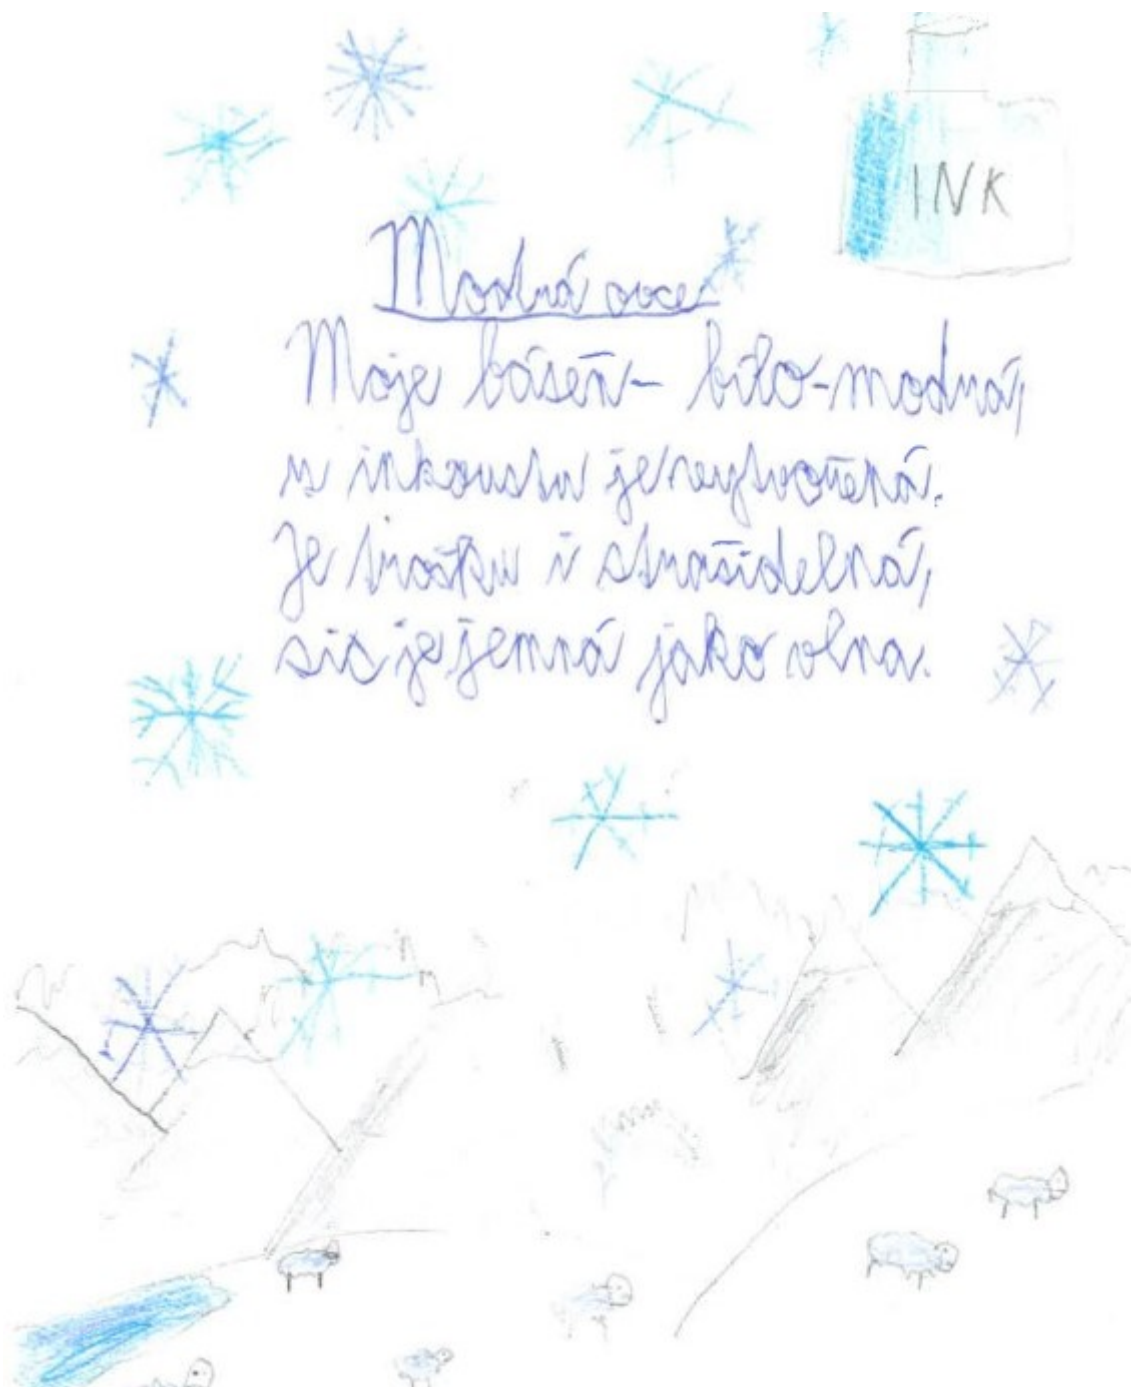 INK
Modrá ovce
Moje báseň - bílo-modrá,
z inkoustu je vytvořená.
Je trošku i strašidelná,
sic je jemná jako vlna.